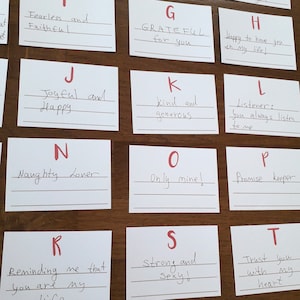 Fearless and
Faithful
G
GRATEFUL
for you
H
Happy to have you
in my life!
J
Joyful and
Happy
K
Kind and
generous
L
Listener:
You always listen
to me
N
Naughty Lover
O
Only mine!
P
Promise keeper
R
Reminding me that
you are my
S
Strong and
Sexy!
T
Trust you
with my
heart